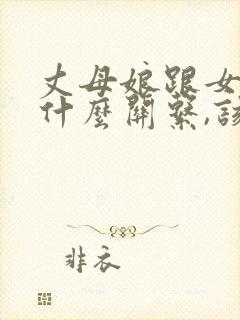 丈母娘跟女
什麼關繫,該
非衣